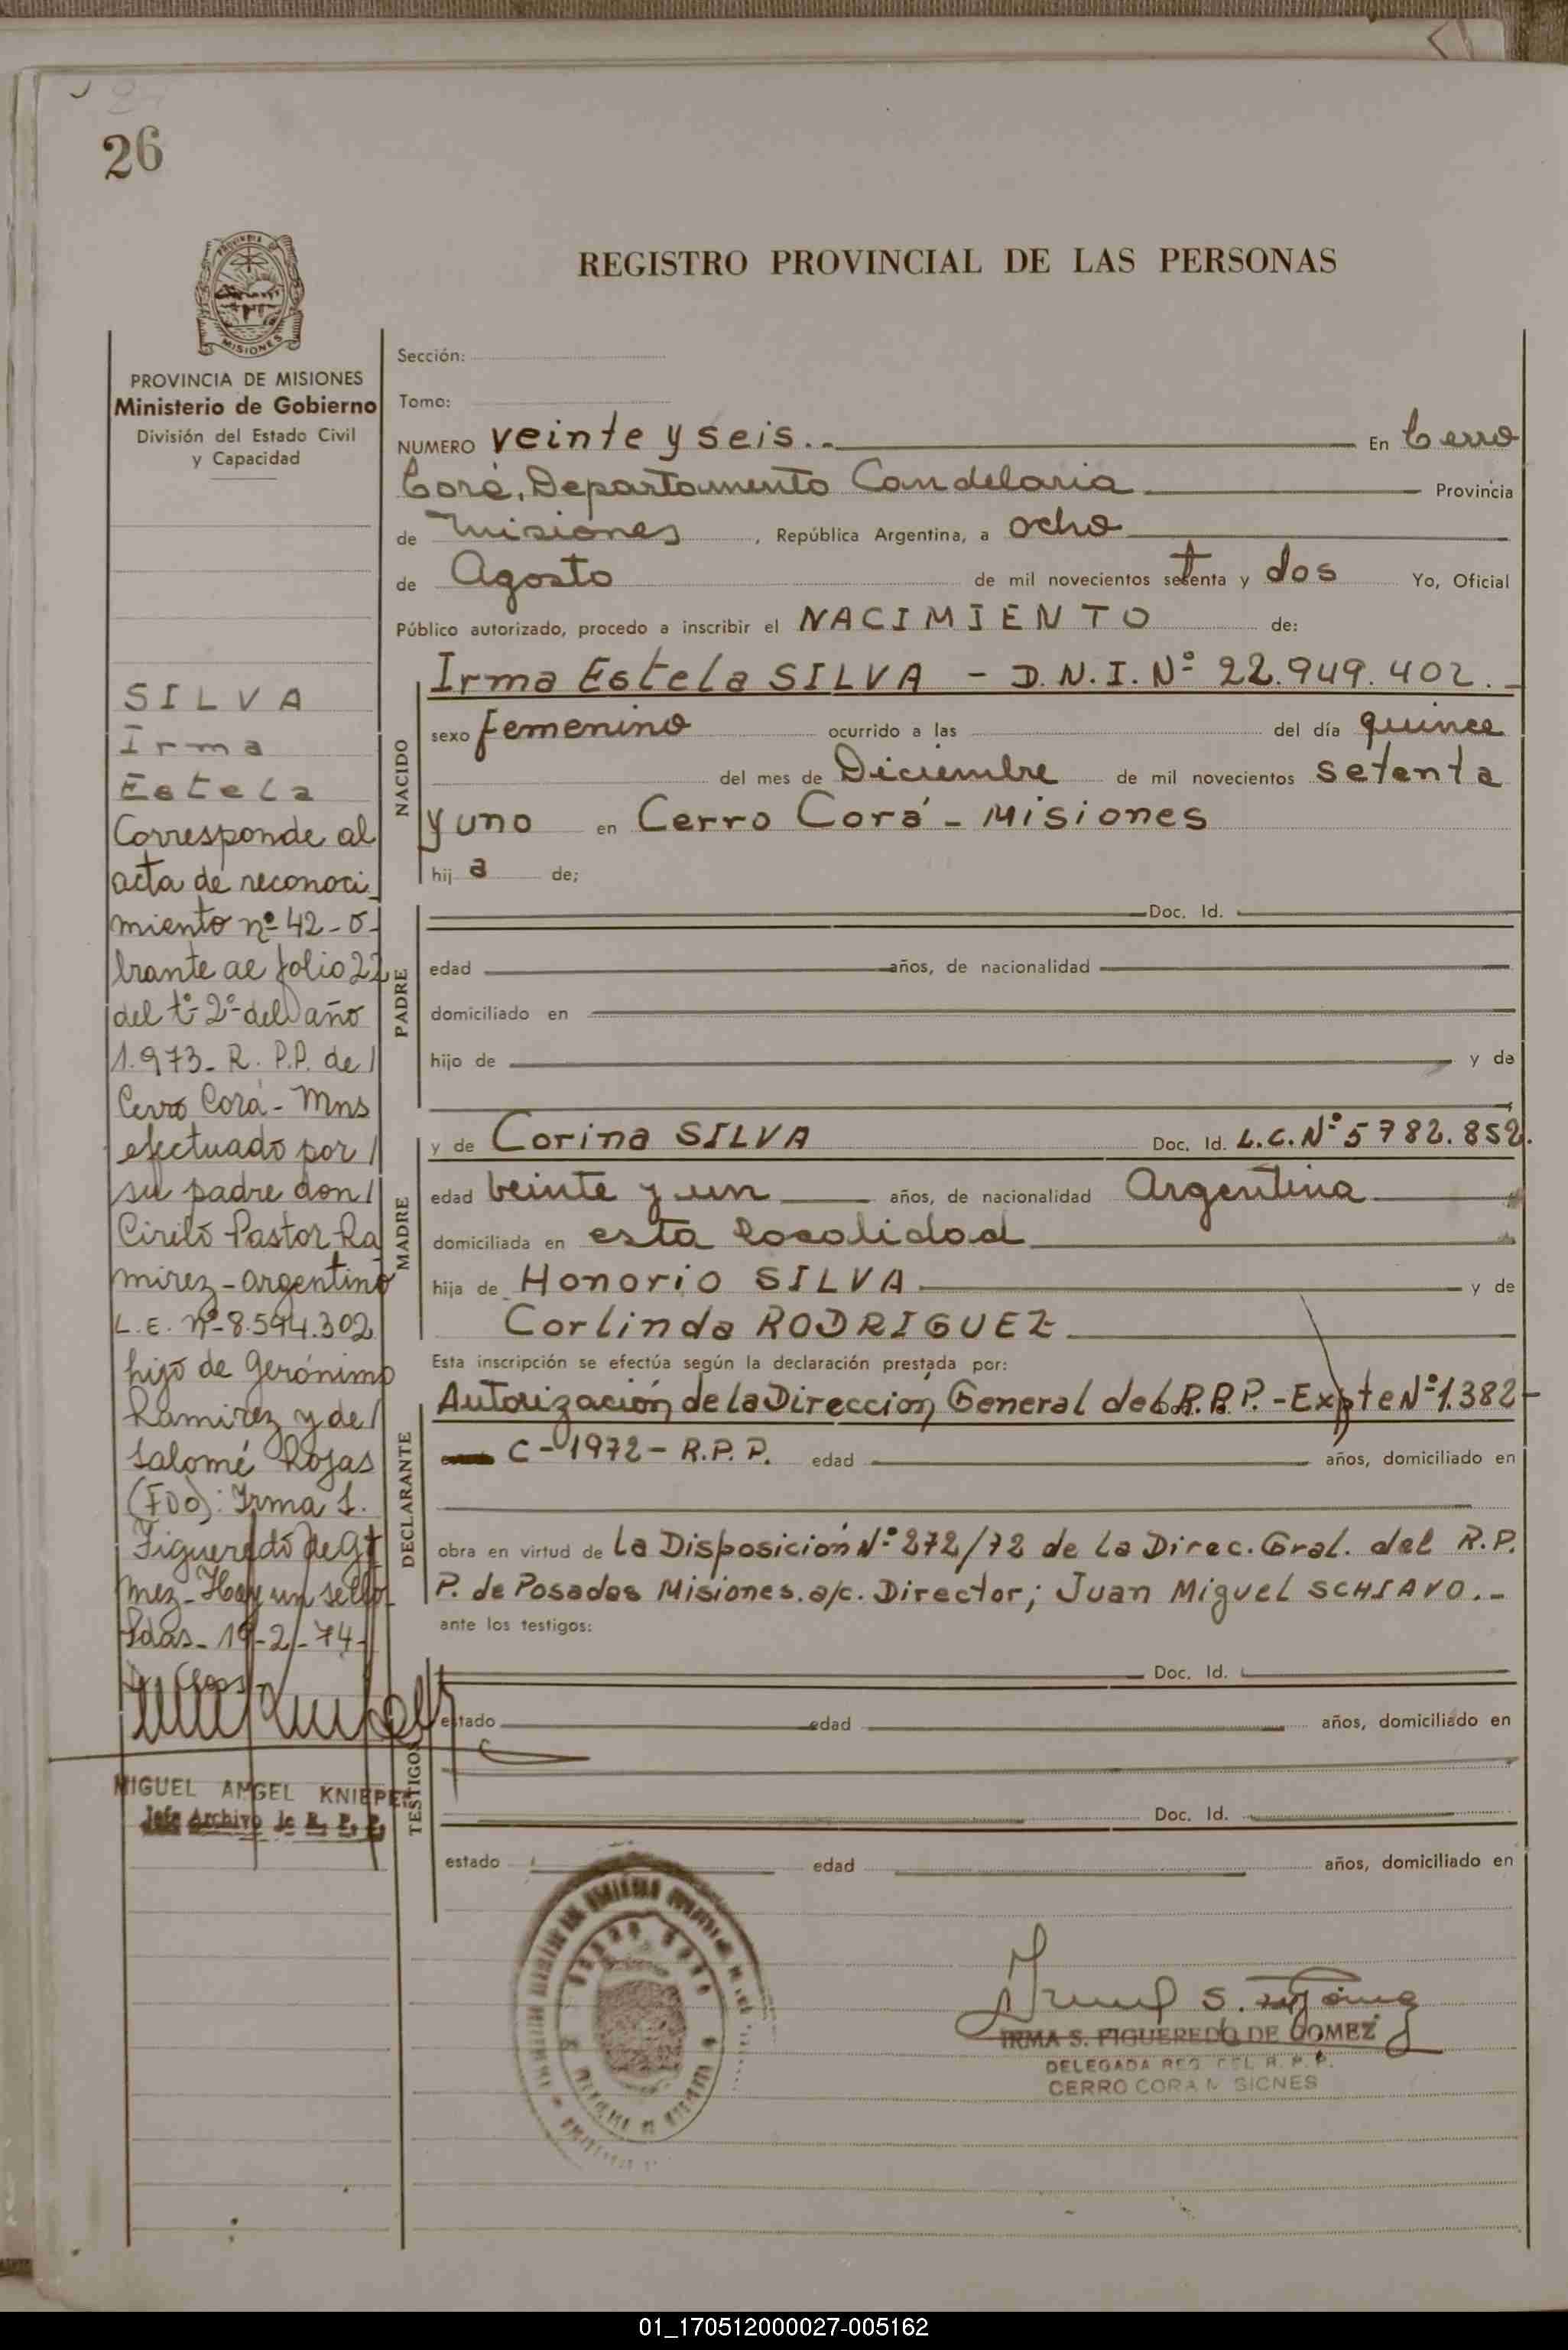 26
REGISTRO PROVINCIAL DE LAS PERSONAS
MISIONES
PROVINCIA DE MISIONES
Ministerio de Gobierno
División del Estado Civil
y Capacidad
SILVA
Irma
Estela
Corresponde al
acta de reconoci
miento nº 42-o-
brante al folio 22
del tº 2º del año
1.973- R. P.P. de /
Cerro Corá - Mns
efectuado por /
su padre don /
Cirilo Pastor Ra
mirez - argentino
L.E. nº 8.594.302
hijo de Gerónimo
Ramirez y de /
Salomé Rojas
(FDO): Irma S.
Figueredo de Gó
mez - Hay un sello
Pdas - 19-2-74-
MIGUEL ANGEL KNIEPER
Jefe Archivo de R. P. P.
Sección:
Tomo:
NUMERO veinte y seis.. En Cerro
Corá, Departamento Candelaria Provincia
de Misiones, República Argentina, a ocho
de Agosto de mil novecientos setenta y dos Yo, Oficial
Público autorizado, procedo a inscribir el NACIMIENTO de:
NACIDO
Irma Estela SILVA - D.N.I. Nº 22.949.402.-
sexo femenino ocurrido a las del día quince
del mes de Diciembre de mil novecientos setenta
y uno en Cerro Corá - Misiones
hij a de;
PADRE
Doc. Id.
edad años, de nacionalidad
domiciliado en
hijo de y de
MADRE
y de Corina SILVA Doc. Id. L.C. Nº 5782.852.
edad veinte y un años, de nacionalidad Argentina
domiciliada en esta localidad
hija de Honorio SILVA y de
Corlinda RODRIGUEZ
Esta inscripción se efectúa según la declaración prestada por:
DECLARANTE
Autorización de la Dirección General del R.P.P. - Expte Nº 1.382-
C-1972- R.P.P. edad años, domiciliado en
obra en virtud de la Disposición Nº 272/72 de la Direc. Gral. del R.P.
P. de Posadas Misiones. a/c. Director; Juan Miguel SCHIAVO.-
ante los testigos:
TESTIGOS
Doc. Id.
estado edad años, domiciliado en
Doc. Id.
estado edad años, domiciliado en
IRMA S. FIGUEREDO DE GOMEZ
DELEGADA REG. DEL R. P. P.
CERRO CORA MISIONES
01_170512000027-005162